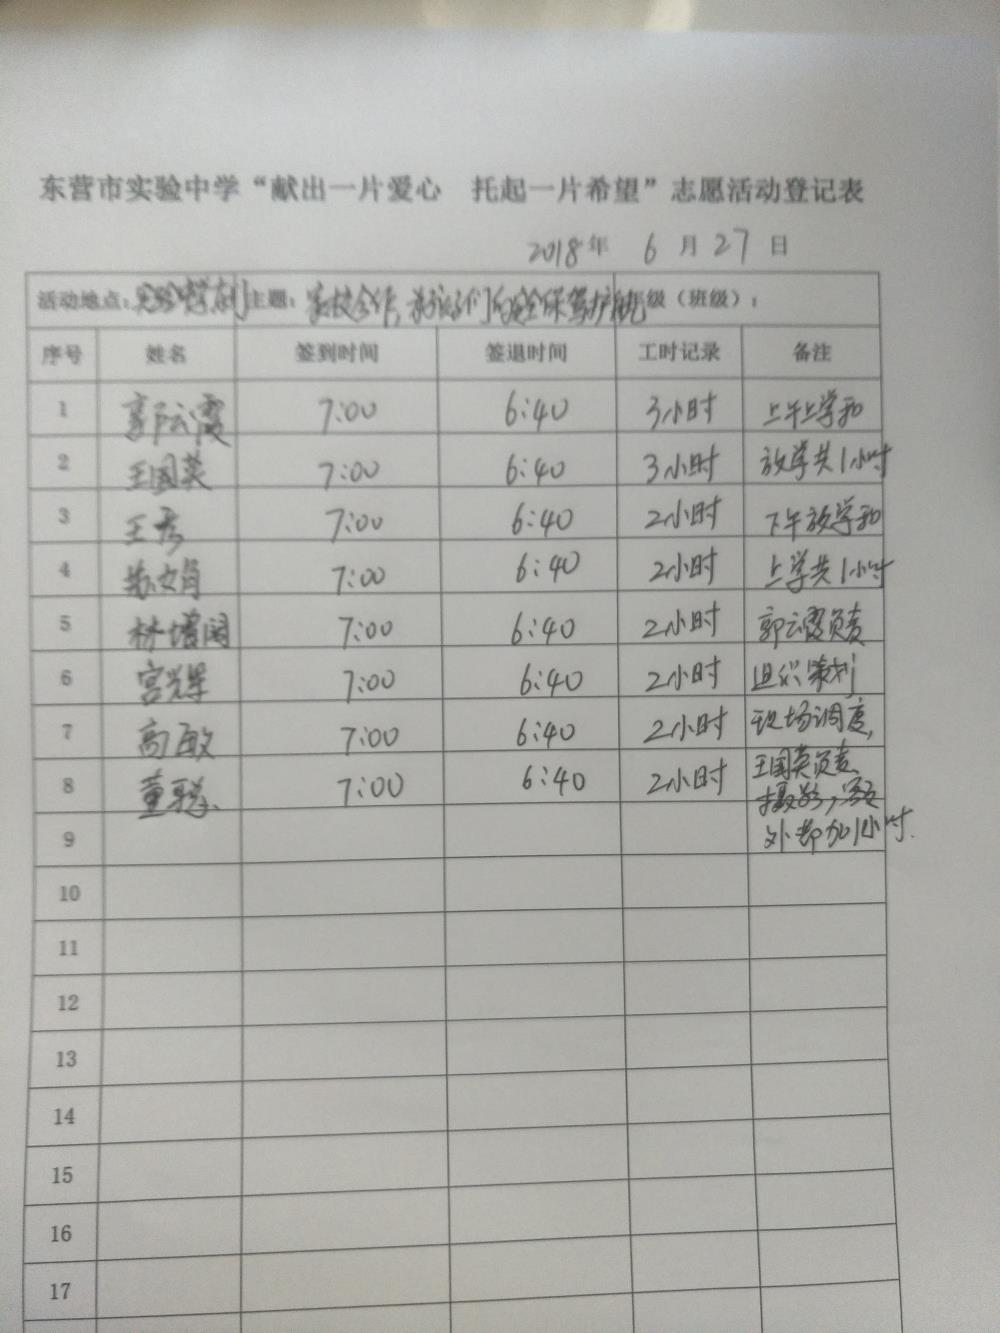 东营市实验中学“献出一片爱心 托起一片希望”志愿活动登记表
2018年 6月27日
活动地点：实验中学东门 主题：家校合作，为孩子们的安全保驾护航 级（班级）：
序号 姓名 签到时间 签退时间 工时记录 备注
1 郭云霞 7:00 6:40 3小时 上午上学和
2 王国英 7:00 6:40 3小时 放学共1小时
3 王秀 7:00 6:40 2小时 下午放学和
4 7:00 6:40 2小时 上学共1小时
5 林增国 7:00 6:40 2小时 郭云霞负责
6 宫光军 7:00 6:40 2小时 组织策划
7 高敏 7:00 6:40 2小时 现场调度，
8 董聪 7:00 6:40 2小时 王国英负责
摄影，
9 外都加1小时.
10
11
12
13
14
15
16
17